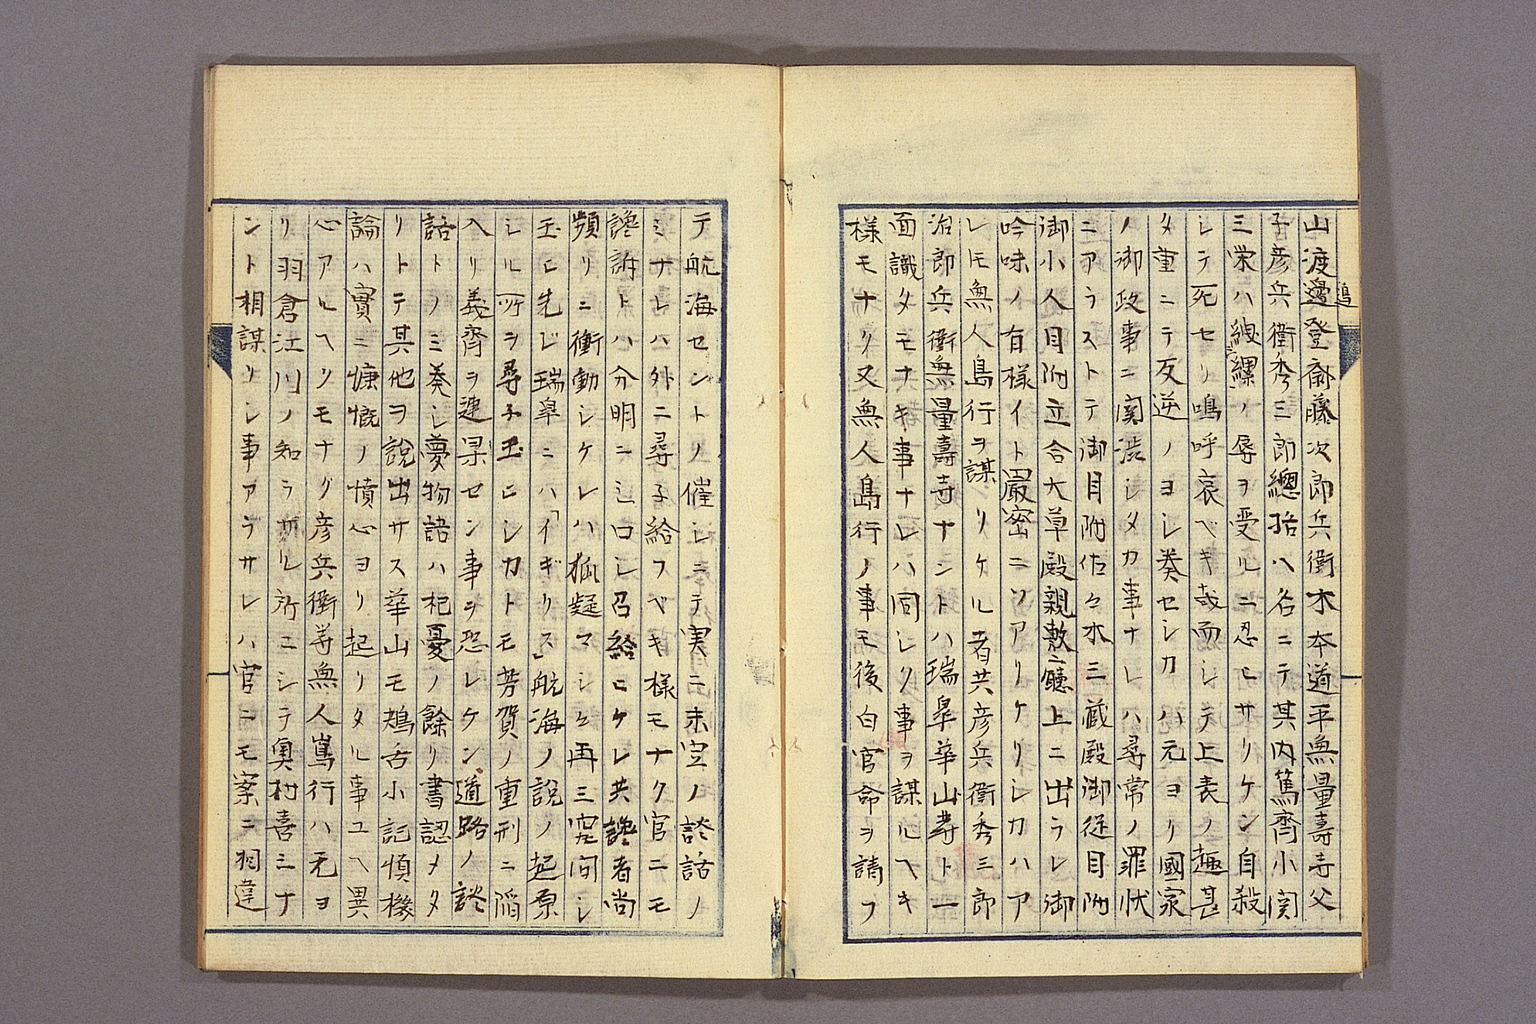 山渡邊登齋藤次郎兵衛木本道平無量壽寺父
子彦兵衛秀三郎總括ハ名ニテ其内篤齊小関
三栄ハ縲ノ辱ヲ受ルニ忍ヒサリケン自殺
シテ死セリ嗚呼哀ヘキ哉而シテ上表ノ趣甚
タ重ニテ反逆ノヨシ奏セシカハ元ヨリ國家
ノ御政事ニ関渋シタカ事ナレハ尋常ノ罪状
ニアラストテ御目附佐々木三蔵殿御徒目附
御小人目附立合大草殿親敷廳上ニ出ラレ御
吟味ノ有様イト嚴密ニソアリケリシカハア
レモ無人島行ヲ謀リケル者共彦兵衛秀三郎
治郎兵衛無量壽寺ナントハ瑞皐華山等ト一
面識タモナキ事ナレハ同シク事ヲ謀ルヘキ
様モナク又無人島行ノ事モ後白官命ヲ請フ
テ航海セントノ催シニテ実ニ未定ノ談話ノ
ミナレハ外ニ尋子給フベキ様モナク官ニモ
讒訴トハ分明ニシロシ召給ヒケレ共讒者尚
頻リニ衝動シケレハ狐疑マシ々再三窓問シ
玉ヒ先レ瑞皐ニハ「イギリス」航海ノ説ノ起原
シル所ヲ尋子玉ヒシカトモ芳賀ノ重刑ニ陥
入リ義齊ヲ連累セン事ヲ恐レケン道路ノ談
話トノミ奏シ夢物語ハ杞憂ノ餘リ書認メタ
リトテ其他ヲ說出サス華山モ鴃舌小記慎機
論ハ實ニ慷慨ノ憤心ヨリ起リタル事ユヘ異
心アルヘリモナグ彦兵衛等無人嶌行ハ元ヨ
リ羽倉江川ノ知ラサル所ニシテ奥村喜三ナ
ント相謀リシ事アラサレハ官ニモ案ニ相違